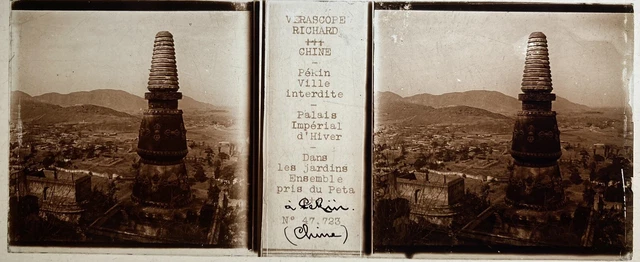 VERASCOPE
RICHARD
141
CHINE
—
Pékin
Ville
interdite
—
Palais
Impérial
d'Hiver
—
Dans
les jardins
Ensemble
pris du Peta
à Pékin.
N° 47.723
(Chine)